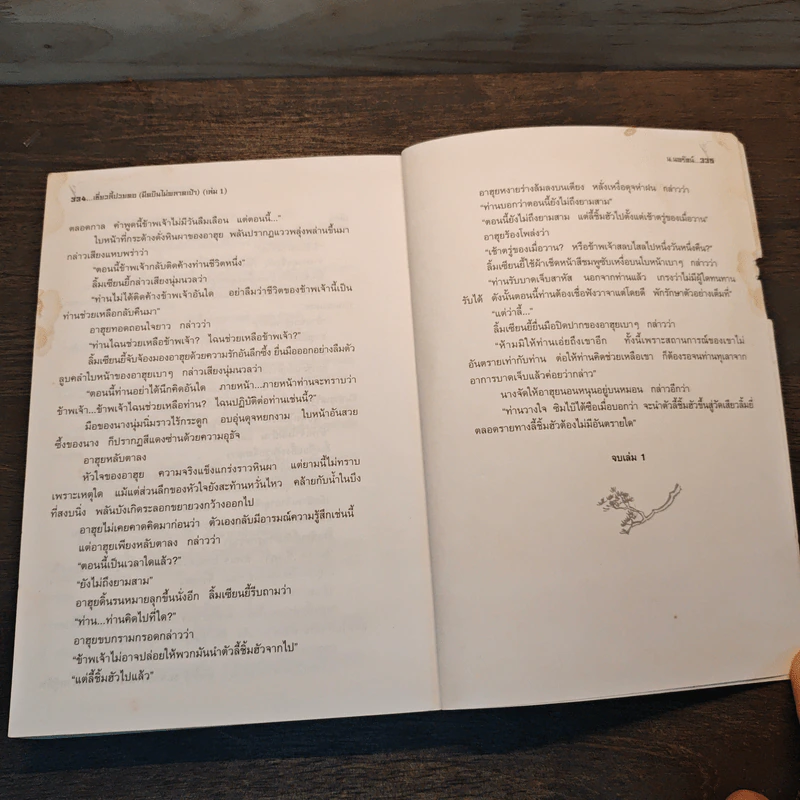 334...เซี่ยวลี้ปวยตอ (มีดบินไม่พลาดเป้า) (เล่ม 1)
ตลอดกาล คำพูดนี้ข้าพเจ้าไม่มีวันลืมเลือน แต่ตอนนี้..."
ใบหน้าที่กระด้างดั่งหินผาของอาฮุย พลันปรากฏแววพลุ่งพล่านขึ้นมา
กล่าวเสียงแหบพร่าว่า
"ตอนนี้ข้าพเจ้ากลับติดค้างท่านชีวิตหนึ่ง"
ลิ้มเซียนยี้กล่าวเสียงนุ่มนวลว่า
"ท่านไม่ได้ติดค้างข้าพเจ้าอันใด อย่าลืมว่าชีวิตของข้าพเจ้านี้เป็น
ท่านช่วยเหลือกลับคืนมา"
อาฮุยทอดถอนใจยาว กล่าวว่า
"ท่านไฉนช่วยเหลือข้าพเจ้า? ไฉนช่วยเหลือข้าพเจ้า?"
ลิ้มเซียนยี้จับจ้องมองอาฮุยด้วยความรักอันลึกซึ้ง ยื่นมือออกอย่างลืมตัว
ลูบคลำใบหน้าของอาฮุยเบาๆ กล่าวเสียงนุ่มนวลว่า
"ตอนนี้ท่านอย่าได้นึกคิดอันใด ภายหน้า...ภายหน้าท่านจะทราบว่า
ข้าพเจ้า...ข้าพเจ้าไฉนช่วยเหลือท่าน? ไฉนปฏิบัติต่อท่านเช่นนี้?"
มือของนางนุ่มนิ่มราวไร้กระดูก อบอุ่นดุจหยกงาม ใบหน้าอันสวย
ซึ้งของนาง ก็ปรากฏสีแดงซ่านด้วยความอุธัจ
อาฮุยหลับตาลง
หัวใจของอาฮุย ความจริงแข็งแกร่งราวหินผา แต่ยามนี้ไม่ทราบ
เพราะเหตุใด แม้แต่ส่วนลึกของหัวใจยังสะท้านหวั่นไหว คล้ายกับน้ำในบึง
ที่สงบนิ่ง พลันบังเกิดระลอกขยายวงกว้างออกไป
อาฮุยไม่เคยคาดคิดมาก่อนว่า ตัวเองกลับมีอารมณ์ความรู้สึกเช่นนี้
แต่อาฮุยเพียงหลับตาลง กล่าวว่า
"ตอนนี้เป็นเวลาใดแล้ว?"
"ยังไม่ถึงยามสาม"
อาฮุยดิ้นรนหมายลุกขึ้นนั่งอีก ลิ้มเซียนยี้รีบถามว่า
"ท่าน...ท่านคิดไปที่ใด?"
อาฮุยขบกรามกรอดกล่าวว่า
"ข้าพเจ้าไม่อาจปล่อยให้พวกมันนำตัวลี้ชิ้มฮัวจากไป"
"แต่ลี้ชิ้มฮัวไปแล้ว"
น.นพรัตน์...335
อาฮุยหงายร่างล้มลงบนเตียง หลั่งเหงื่อดุจห่าฝน กล่าวว่า
"ท่านบอกว่าตอนนี้ยังไม่ถึงยามสาม"
"ตอนนี้ยังไม่ถึงยามสาม แต่ลี้ชิ้มฮัวไปตั้งแต่เช้าตรู่ของเมื่อวาน"
อาฮุยร้องโพล่งว่า
"เช้าตรู่ของเมื่อวาน? หรือข้าพเจ้าสลบไสลไปหนึ่งวันหนึ่งคืน?"
ลิ้มเซียนยี้ใช้ผ้าเช็ดหน้าสีชมพูซับเหงื่อบนใบหน้าเบาๆ กล่าวว่า
"ท่านรับบาดเจ็บสาหัส นอกจากท่านแล้ว เกรงว่าไม่มีผู้ใดทนทาน
รับได้ ดังนั้นตอนนี้ท่านต้องเชื่อฟังวาจาแต่โดยดี พักรักษาตัวอย่างเต็มที่"
"แต่ว่าลี้..."
ลิ้มเซียนยี้ยื่นมือปิดปากของอาฮุยเบาๆ กล่าวว่า
"ห้ามมิให้ท่านเอ่ยถึงเขาอีก ทั้งนี้เพราะสถานการณ์ของเขาไม่
อันตรายเท่ากับท่าน ต่อให้ท่านคิดช่วยเหลือเขา ก็ต้องรอจนท่านทุเลาจาก
อาการบาดเจ็บแล้วค่อยว่ากล่าว"
นางจัดให้อาฮุยนอนหนุนอยู่บนหมอน กล่าวอีกว่า
"ท่านวางใจ ซิมไป๊ไต้ซือเมื่อบอกว่า จะนำตัวลี้ชิ้มฮัวขึ้นสู่วัดเสียวลิ้มยี่
ตลอดรายทางลี้ชิ้มฮัวต้องไม่มีอันตรายใด"
จบเล่ม 1